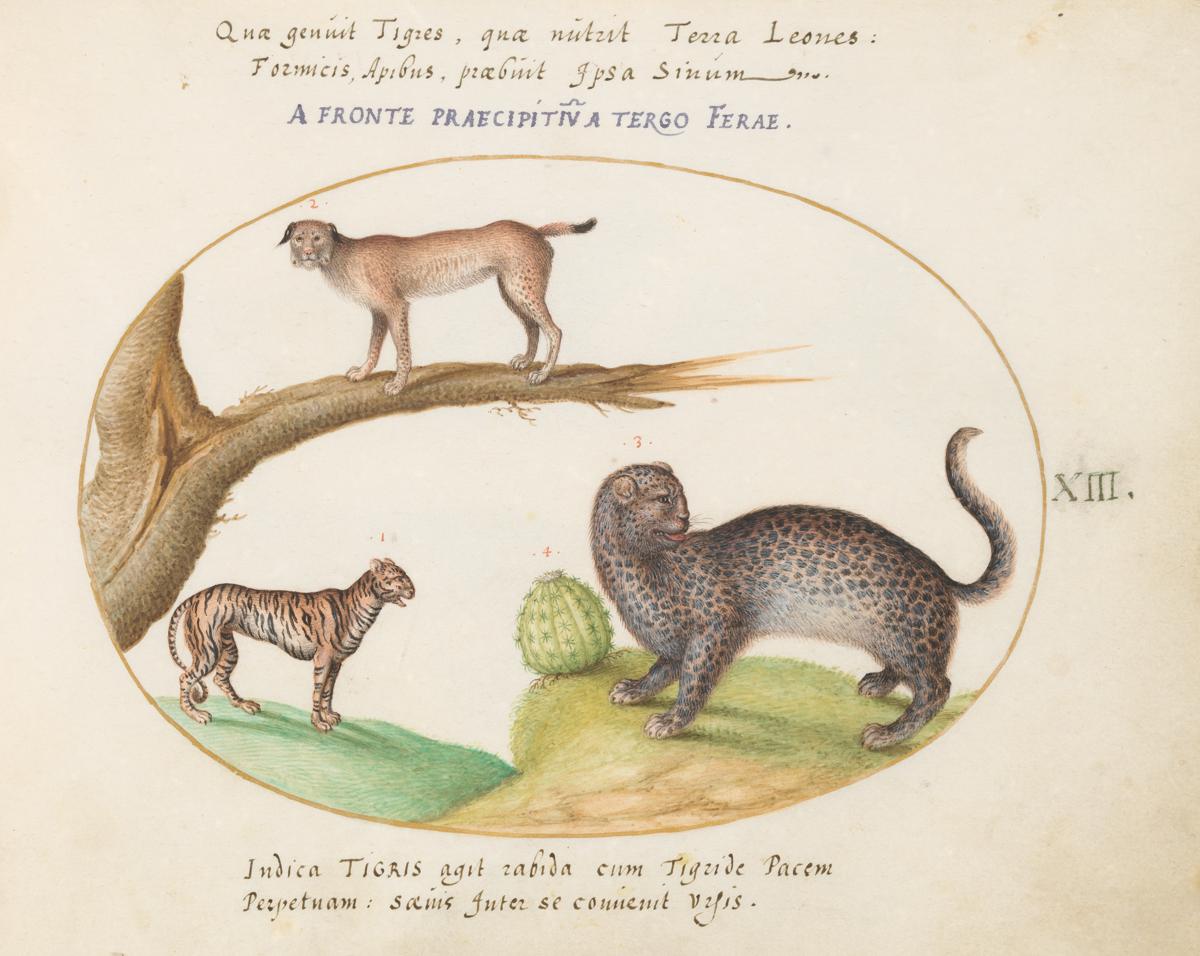 Quæ genuit Tigres, quæ nutrit Terra Leones:
Formicis, Apibus, præbuit Ipsa Sinum
A FRONTE PRAECIPITIṼ A TERGO FERAE.
·2·
·3·
XIII.
·1·
·4·
Indica TIGRIS agit rabida cum Tigride Pacem
Perpetuam: sævis Inter se convenit Vrsis.